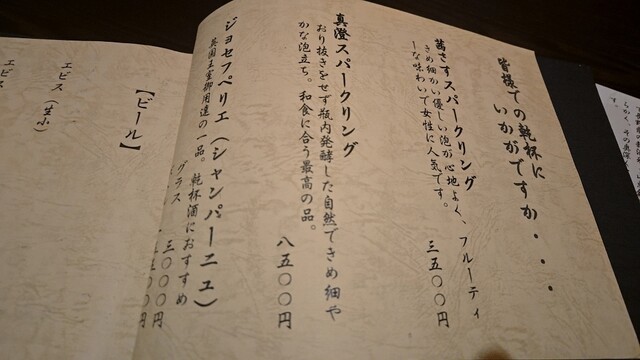 皆様での乾杯に
いかがですか・・・
茜さすスパークリング
きめ細かい優しい泡が心地よく、フルーティ
ーな味わいで女性に人気です。
三五〇〇円
真澄スパークリング
おり抜きをせず瓶内発酵した自然できめ細や
かな泡立ち。和食に合う最高の品。
八五〇〇円
ジョセフペリエ（シャンパーニュ）
英国王室御用達の一品。乾杯酒におすすめ
グラス
三〇〇〇円
【ビール】
エビス（生小）
エビス